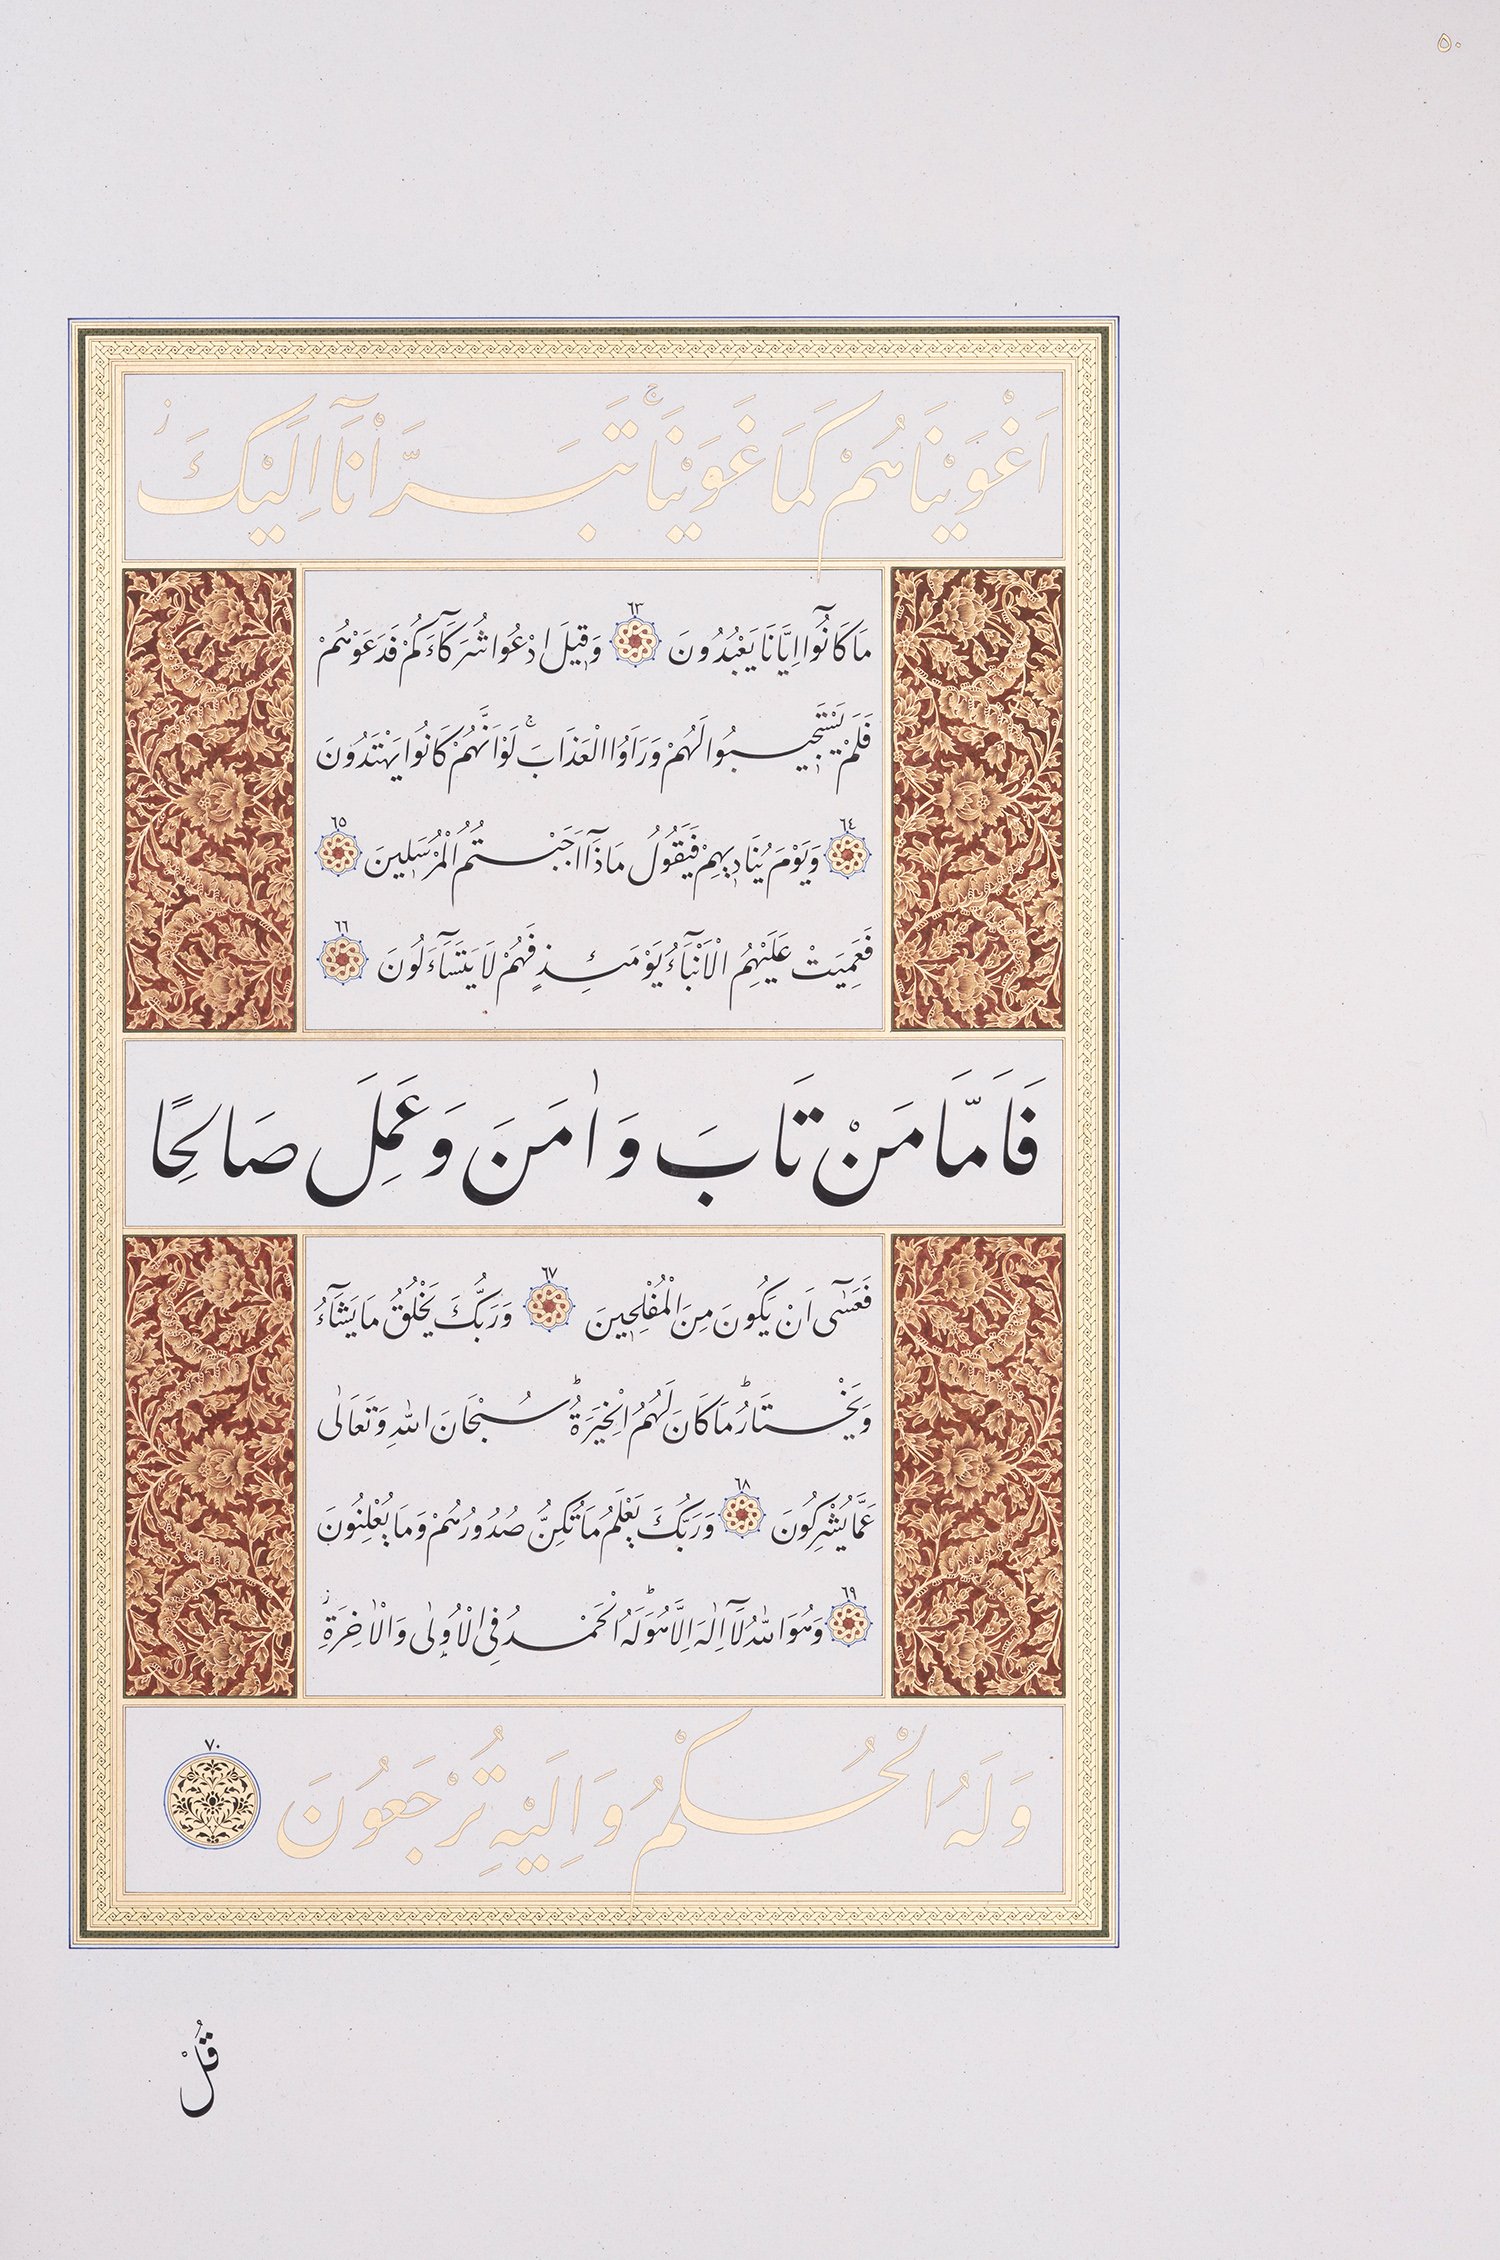 ٥٠
اَغْوَيْنَاهُمْ كَمَا غَوَيْنَاۚ تَبَرَّأْنَٓا اِلَيْكَۘ
مَا كَانُٓوا اِيَّانَا يَعْبُدُونَ ٦٣ وَقٖيلَ ادْعُوا شُرَكَٓاءَكُمْ فَدَعَوْهُمْ
فَلَمْ يَسْتَجٖيبُوا لَهُمْ وَرَاَوُا الْعَذَابَۚ لَوْ اَنَّهُمْ كَانُوا يَهْتَدُونَ
٦٤ وَيَوْمَ يُنَادٖيهِمْ فَيَقُولُ مَاذَٓا اَجَبْتُمُ الْمُرْسَلٖينَ ٦٥
فَعَمِيَتْ عَلَيْهِمُ الْاَنْبَٓاءُ يَوْمَئِذٍ فَهُمْ لَا يَتَسَٓاءَلُونَ ٦٦
فَاَمَّا مَنْ تَابَ وَاٰمَنَ وَعَمِلَ صَالِحًا
فَعَسٰٓى اَنْ يَكُونَ مِنَ الْمُفْلِحٖينَ ٦٧ وَرَبُّكَ يَخْلُقُ مَا يَشَٓاءُ
وَيَخْتَارُؕ مَا كَانَ لَهُمُ الْخِيَرَةُؕ سُبْحَانَ اللّٰهِ وَتَعَالٰى
عَمَّا يُشْرِكُونَ ٦٨ وَرَبُّكَ يَعْلَمُ مَا تُكِنُّ صُدُورُهُمْ وَمَا يُعْلِنُونَ
٦٩ وَهُوَ اللّٰهُ لَٓا اِلٰهَ اِلَّا هُوَؕ لَهُ الْحَمْدُ فِي الْاُو۫لٰى وَالْاٰخِرَةِؗ
وَلَهُ الْحُكْمُ وَاِلَيْهِ تُرْجَعُونَ ٧٠
قُلْ